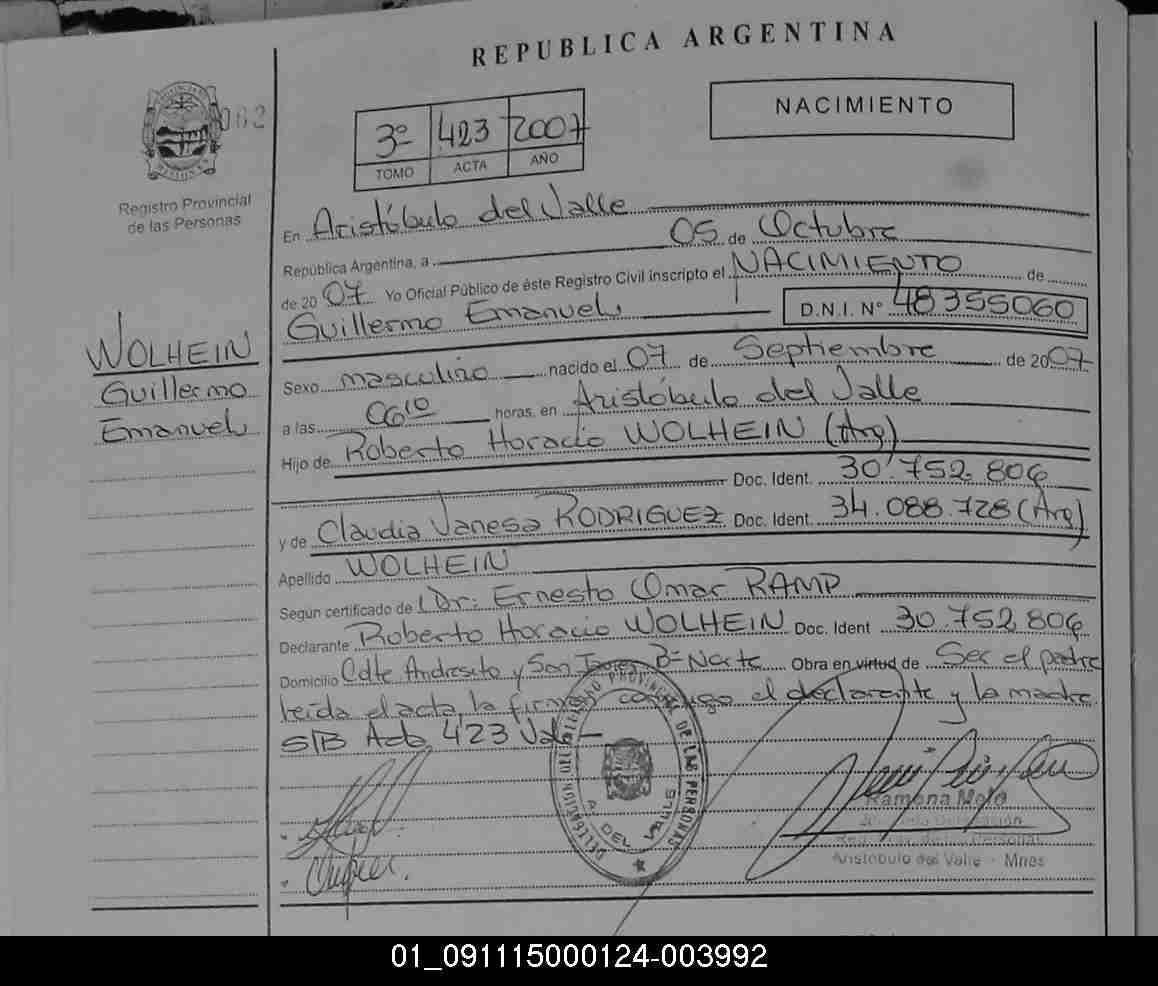 REPUBLICA ARGENTINA
062
3º 423 2007
TOMO ACTA AÑO
NACIMIENTO
Registro Provincial
de las Personas
En Aristóbulo del Valle
República Argentina, a 05 de Octubre
de 2007 Yo Oficial Público de éste Registro Civil inscripto el NACIMIENTO de
Guillermo Emanuel D.N.I. Nº 48355060
WOLHEIN
Guillermo
Emanuel
Sexo masculino nacido el 07 de Septiembre de 2007
a las 06 10 horas, en Aristóbulo del Valle
Hijo de Roberto Horacio WOLHEIN (Arg)
Doc. Ident. 30.752.806
y de Claudia Vanesa RODRIGUEZ Doc. Ident. 34.088.728 (Arg)
Apellido WOLHEIN
Según certificado de Dr: Ernesto Omar RAMP
Declarante Roberto Horacio WOLHEIN Doc. Ident 30.752.806
Domicilio Cdte Andresito y San Javier Bº Norte Obra en virtud de Ser el padre
leída el acta, la firman conmigo el declarante y la madre
S/B Acta 423 Vale
DELEGACION DEL REGISTRO PROVINCIAL DE LAS PERSONAS
A. DEL VALLE
Ramona Melo
Delegación
Aristóbulo del Valle - Mnes
01_091115000124-003992